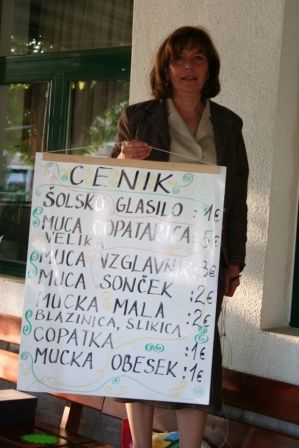 CENIK
ŠOLSKO GLASILO : 1€
MUCA COPATARICA : 5€
VELIKA
MUCA VZGLAVNIK : 3€
MUCA SONČEK : 2€
MUCKA MALA : 2€
BLAZINICA, SLIKICA
COPATKA : 1€
MUCKA OBESEK : 1€